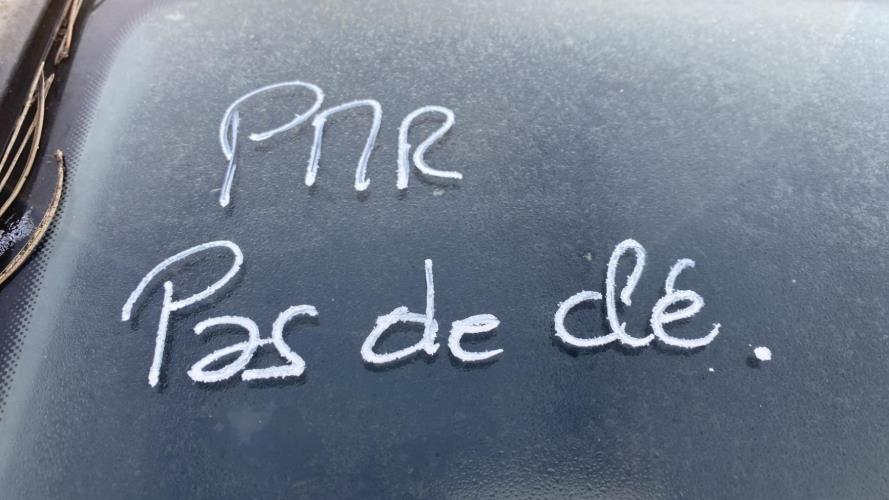 PNR
Pas de clé.